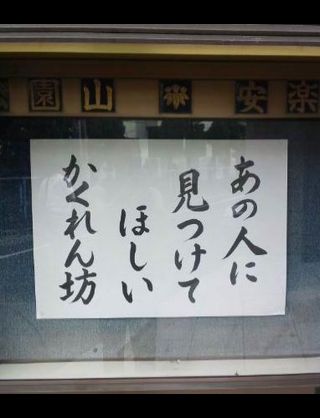 園山 安楽
あの人に
見つけて
ほしい
かくれん坊